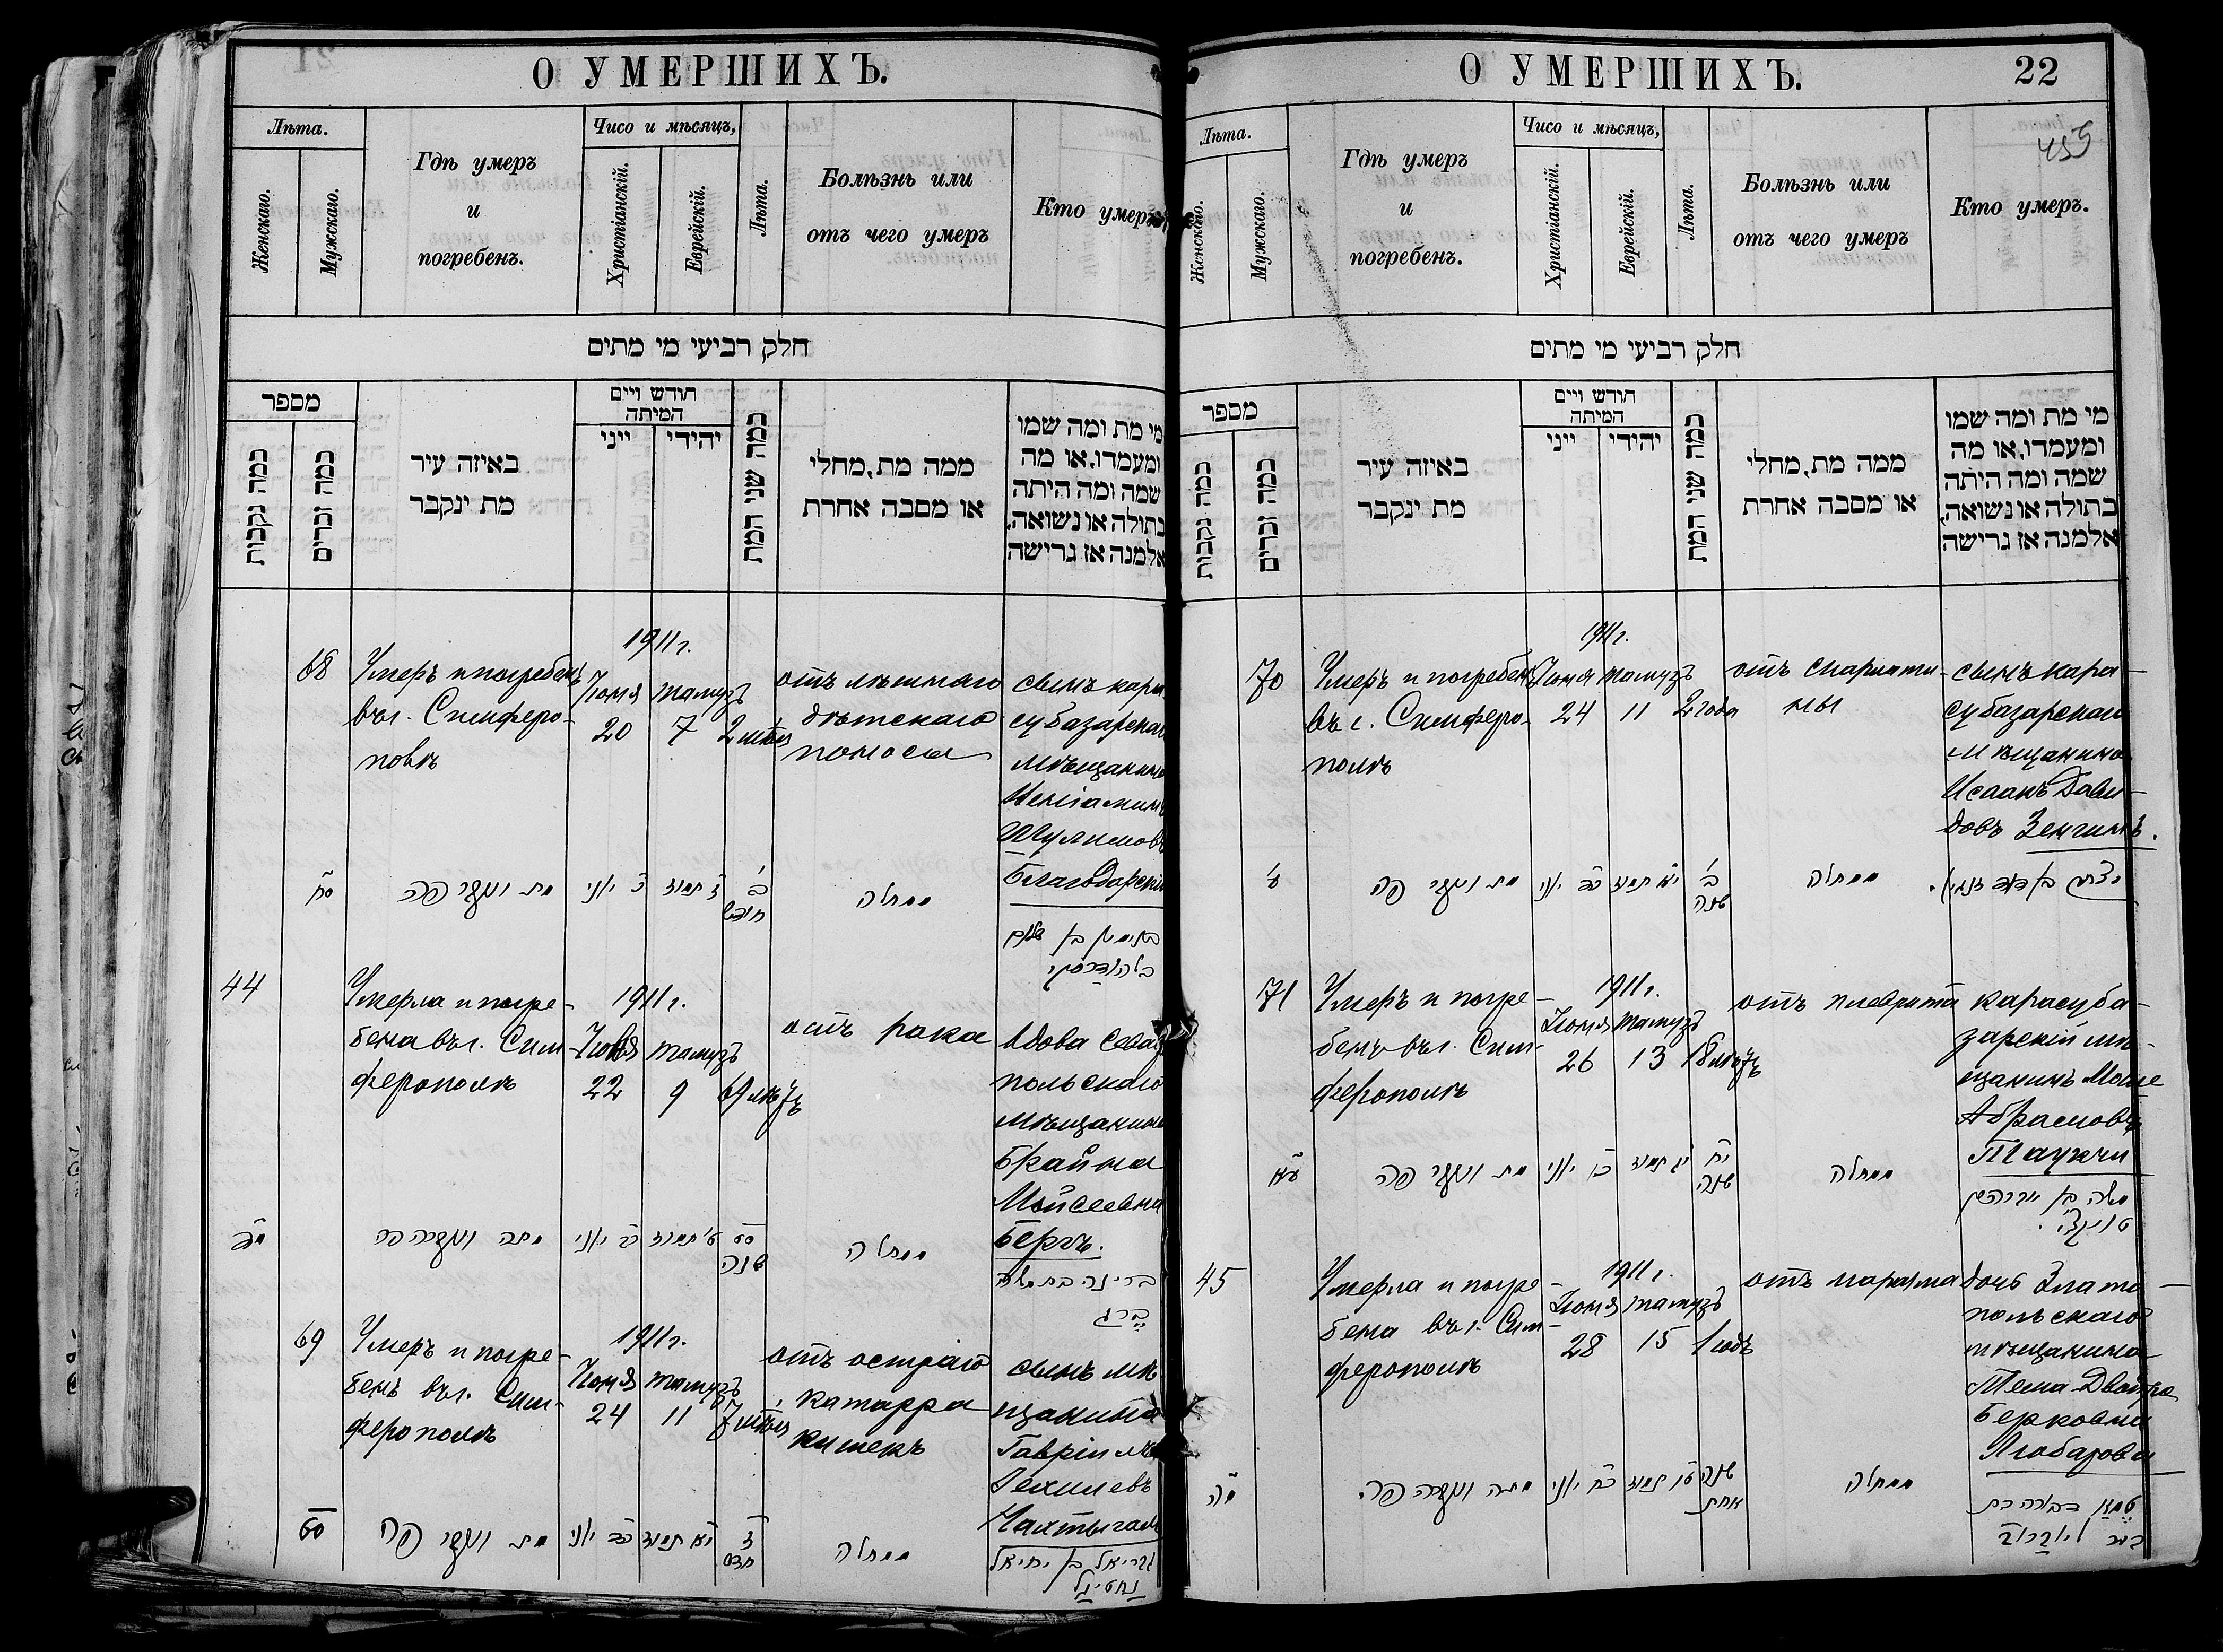 О УМЕРШИХЪ.
Лѣта.
Женскаго.
Мужскаго.
Гдѣ умеръ
и
погребенъ.
Чисо и мѣсяцъ,
Христіанскій.
Еврейскій.
Лѣта.
Болѣзнь или
отъ чего умеръ
Кто умеръ.
חלק רביעי מי מתים
מספר
כמה נקבות
כמה זכרים
באיזה עיר
מת ינקבר
חודש ויים
המיתה
ייני
יהידי
כמה שני המת
ממה מת, מחלי
או מסבה אחרת
מי מת ומה שמו
ומעמדו, או מה
שמה ומה היתה
בתולה או נשואה,
אלמנה אז גרישה
68
Умеръ и погребенъ
въ г. Симферо-
1911 г.
Іюня
20
тамузъ
7
2
отъ лѣтняго
дѣтскаго
поноса
сынъ кара
субазарскаго
мѣщанина
Шулимовъ
סח
מת ונקבר פה
כ׳ יוני
ז׳ תמוז
ב׳
חודש
מחלה
בנימין בן שלום
44
Умерла и погре-
бена въ г. Сим-
ферополѣ
1911 г.
Іюня
22
тамузъ
9
69 лѣтъ
отъ рака
Вдова Севас
польскаго
мѣщанина
Брайна
Мойсеевна
Бергъ.
מד
מתה ונקברה פה
כב יוני
ט׳ תמוז
סט
שנה
מחלה
בריינה בת משה
בערג
69
Умеръ и погре-
бенъ въ г. Сим-
ферополѣ
1911 г.
Іюня
24
тамузъ
11
7
отъ остраго
катарра
кишекъ
сынъ мѣ
щанина
Гавріилъ
Іехилевъ
סט
מת ונקבר פה
כד יוני
יא תמוז
ז
חדש
מחלה
גבריאל בן יחיאל
О УМЕРШИХЪ.
22
455
Лѣта.
Женскаго.
Мужскаго.
Гдѣ умеръ
и
погребенъ.
Чисо и мѣсяцъ,
Христіанскій.
Еврейскій.
Лѣта.
Болѣзнь или
отъ чего умеръ
Кто умеръ.
חלק רביעי מי מתים
מספר
כמה נקבות
כמה זכרים
באיזה עיר
מת ינקבר
חודש ויים
המיתה
ייני
יהידי
כמה שני המת
ממה מת, מחלי
או מסבה אחרת
מי מת ומה שמו
ומעמדו, או מה
שמה ומה היתה
בתולה או נשואה,
אלמנה אז גרישה
70
Умеръ и погребенъ
въ г. Симферо-
полѣ
1911 г.
Іюня
24
тамузъ
11
2 года
отъ скарлати-
ны
сынъ кара-
субазарскаго
мѣщанина
Исаакъ Дави-
довъ Зенгинъ.
ע׳
מת ונקבר פה
כד יוני
יא תמוז
ב׳
שנה
מחלה
יצחק בן דוד זנגין.
71
Умеръ и погре-
бенъ въ г. Сим-
ферополѣ
1911 г.
Іюня
26
тамузъ
13
18 лѣтъ
отъ плеврита
карасуба-
зарскій мѣ-
щанинъ Моше
Абрамовъ
Таукчи
עא
מת ונקבר פה
כו יוני
יג תמוז
יח
שנה
מחלה
משה בן אברהם
45
Умерла и погре-
бена въ г. Сим-
ферополѣ
1911 г.
Іюня
28
тамузъ
15
1 годъ
дочь Злато-
польскаго
мѣщанина
Двойра
Берковна
מה
מתה ונקברה פה.
כח יוני
טו תמוז
שנה
אחת
מחלה